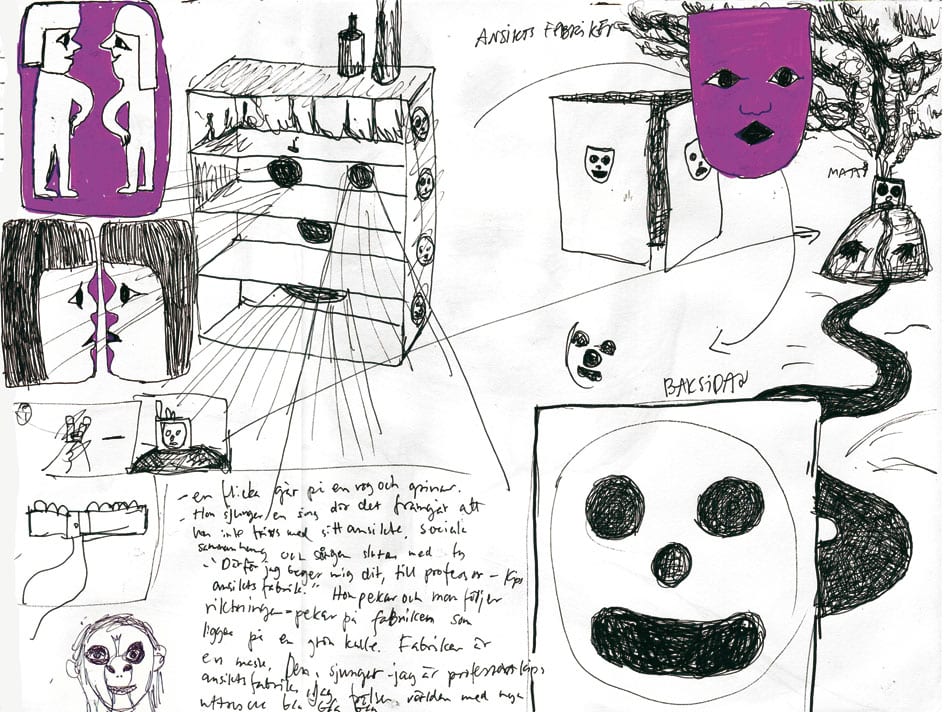 ANSIKTS FABRIKEN
MATS
BAKSIDAN
- en flicka går på en väg och grinar.
- Hon sjunger en sång där det framgår att
hon inte trivs med sitt ansikte, sociala
sammanhang och sången slutar med ty
- "Därför jag beger mig dit, till professor -
ansiktsfabrik." Hon pekar och man följer
riktningen - pekar på fabriken som
ligger på en grön kulle. Fabriken är
en mask. Den sjunger - jag är professor
ansiktsfabrik, jag världen med nya
bla bla bla